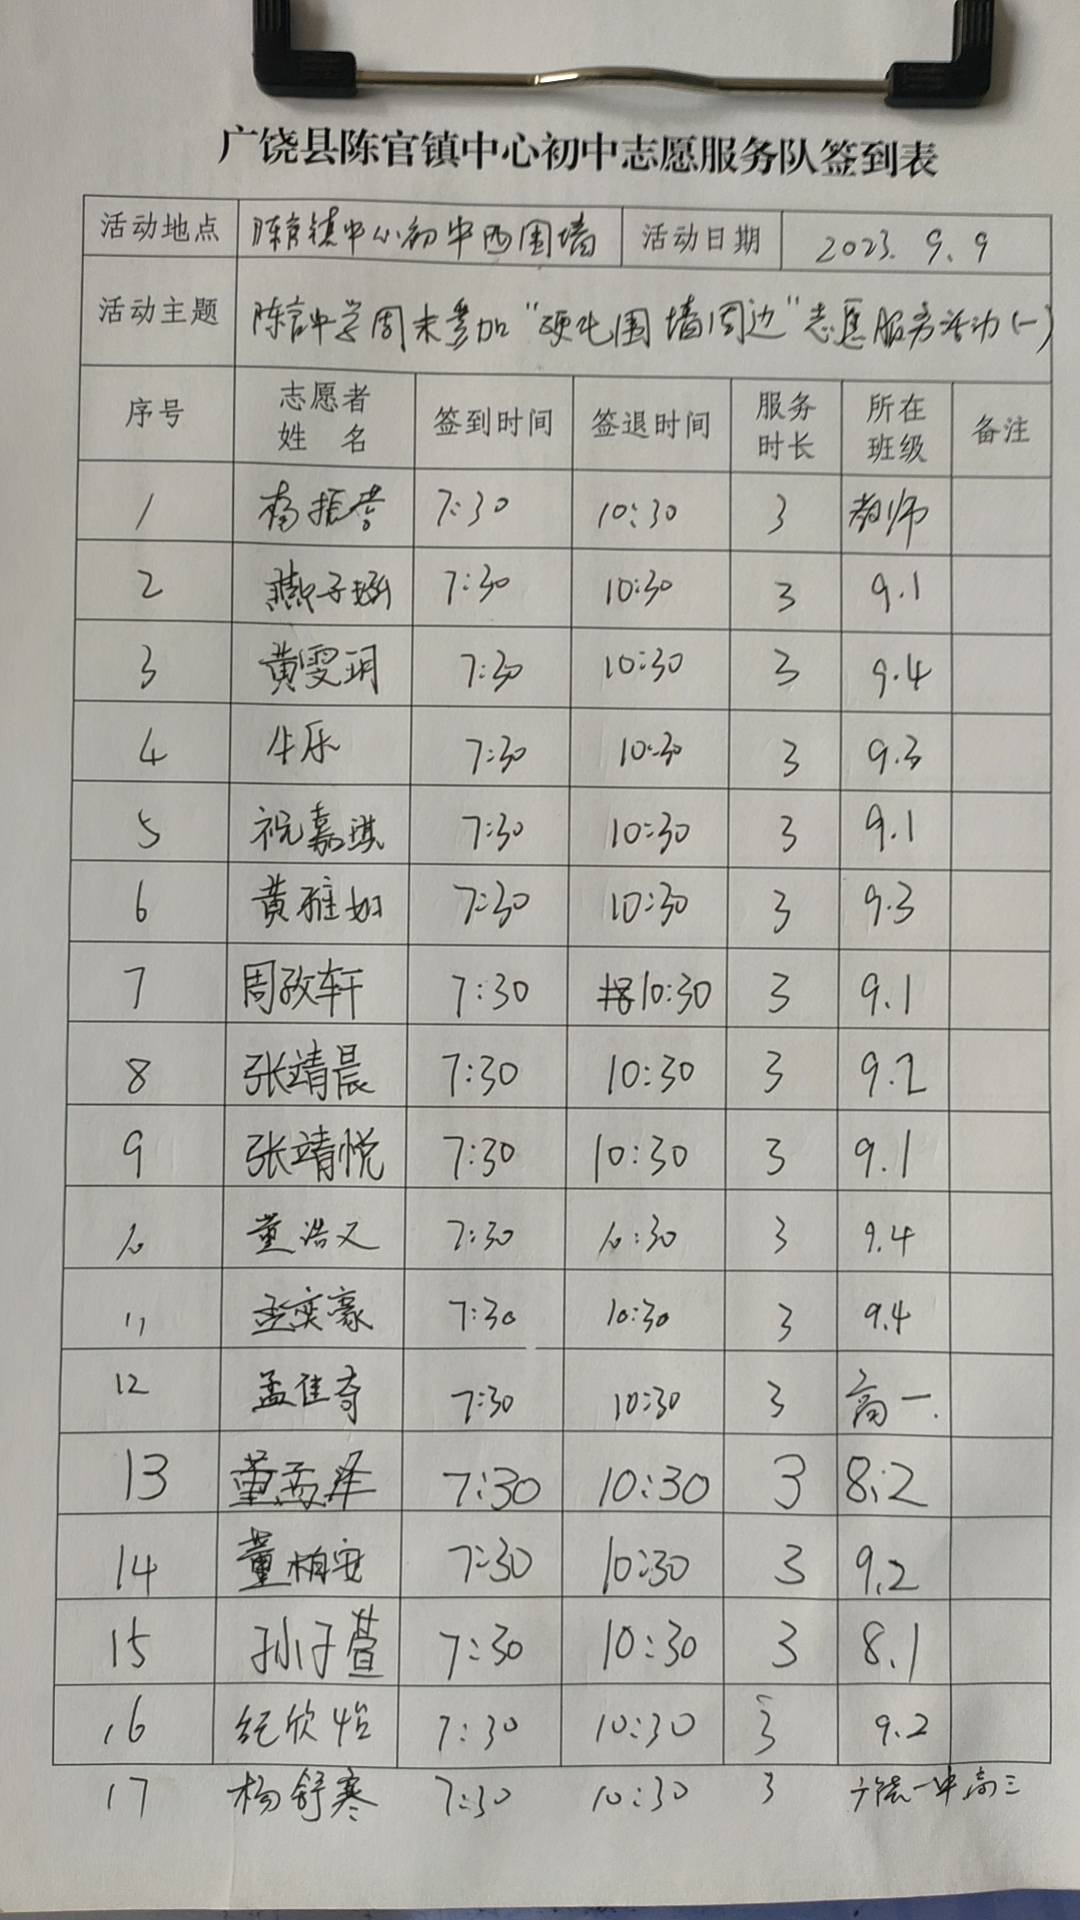 广饶县陈官镇中心初中志愿服务队签到表
活动地点 陈官镇中心初中西围墙 活动日期 2023. 9. 9
活动主题 陈官中学周末参加“硬化围墙周边”志愿服务活动(一)
序号 志愿者姓名 签到时间 签退时间 服务时长 所在班级 备注
1 杨振营 7:30 10:30 3 教师
2 燕子涵 7:30 10:30 3 9.1
3 黄雯玥 7:30 10:30 3 9.4
4 牛乐 7:30 10:30 3 9.3
5 祝嘉琪 7:30 10:30 3 9.1
6 黄雅如 7:30 10:30 3 9.3
7 周政轩 7:30 10:30 3 9.1
8 张靖晨 7:30 10:30 3 9.2
9 张靖悦 7:30 10:30 3 9.1
10 董浩文 7:30 10:30 3 9.4
11 孟奕豪 7:30 10:30 3 9.4
12 孟佳奇 7:30 10:30 3 高一.
13 董孟泽 7:30 10:30 3 8.2
14 董柏安 7:30 10:30 3 9.2
15 孙子萱 7:30 10:30 3 8.1
16 纪欣怡 7:30 10:30 3 9.2
17 杨舒寒 7:30 10:30 3 广饶一中高三